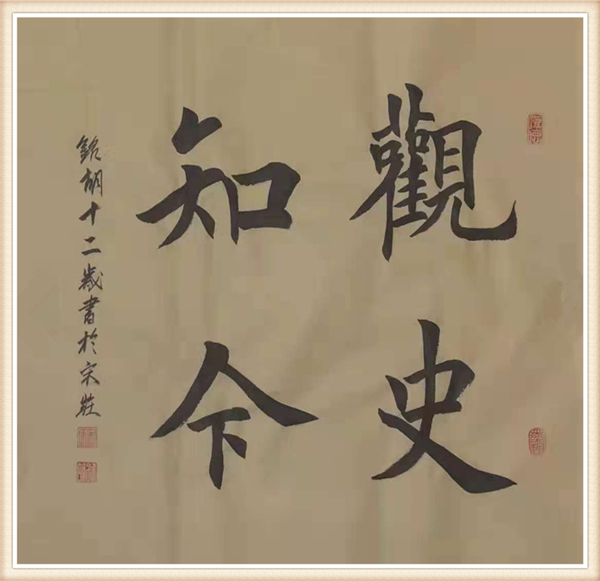 觀史
知今
銘胡十二歲書於宋莊